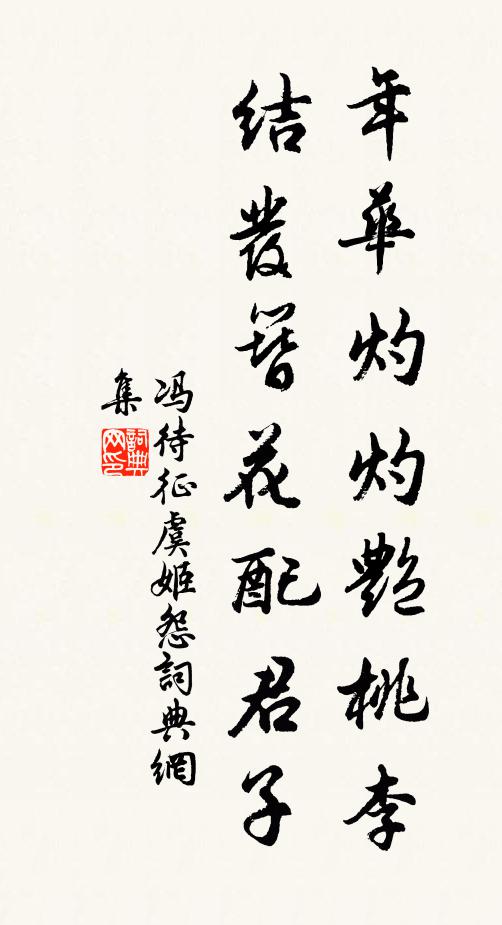 年華灼灼艷桃李
結發簪花配君子
馮待征虞姬怨詞典網
集
詞典網印